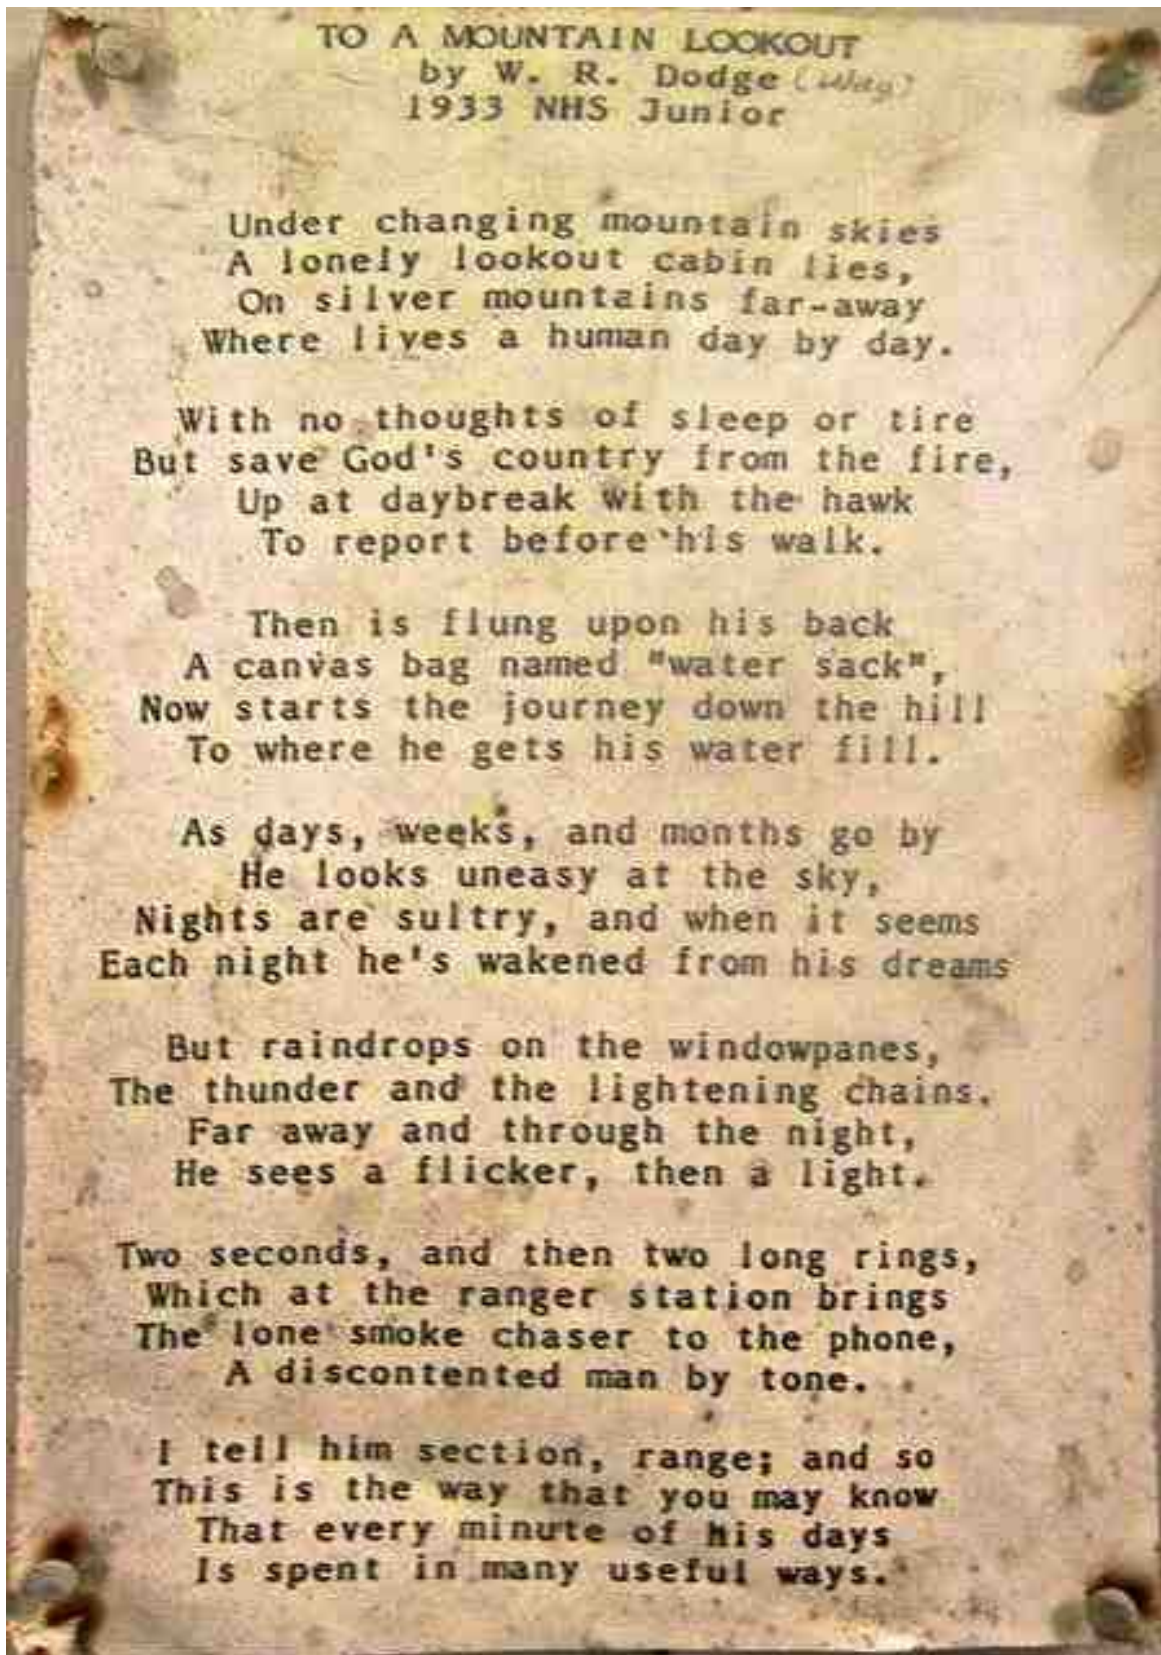 TO A MOUNTAIN LOOKOUT
by W. R. Dodge
1933 NHS Junior
Under changing mountain skies
A lonely lookout cabin lies,
On silver mountains far-away
Where lives a human day by day.
With no thoughts of sleep or tire
But save God's country from the fire,
Up at daybreak with the hawk
To report before his walk.
Then is flung upon his back
A canvas bag named "water sack",
Now starts the journey down the hill
To where he gets his water fill.
As days, weeks, and months go by
He looks uneasy at the sky,
Nights are sultry, and when it seems
Each night he's wakened from his dreams
But raindrops on the windowpanes,
The thunder and the lightening chains.
Far away and through the night,
He sees a flicker, then a light.
Two seconds, and then two long rings,
Which at the ranger station brings
The lone smoke chaser to the phone,
A discontented man by tone.
I tell him section, range; and so
This is the way that you may know
That every minute of his days
Is spent in many useful ways.